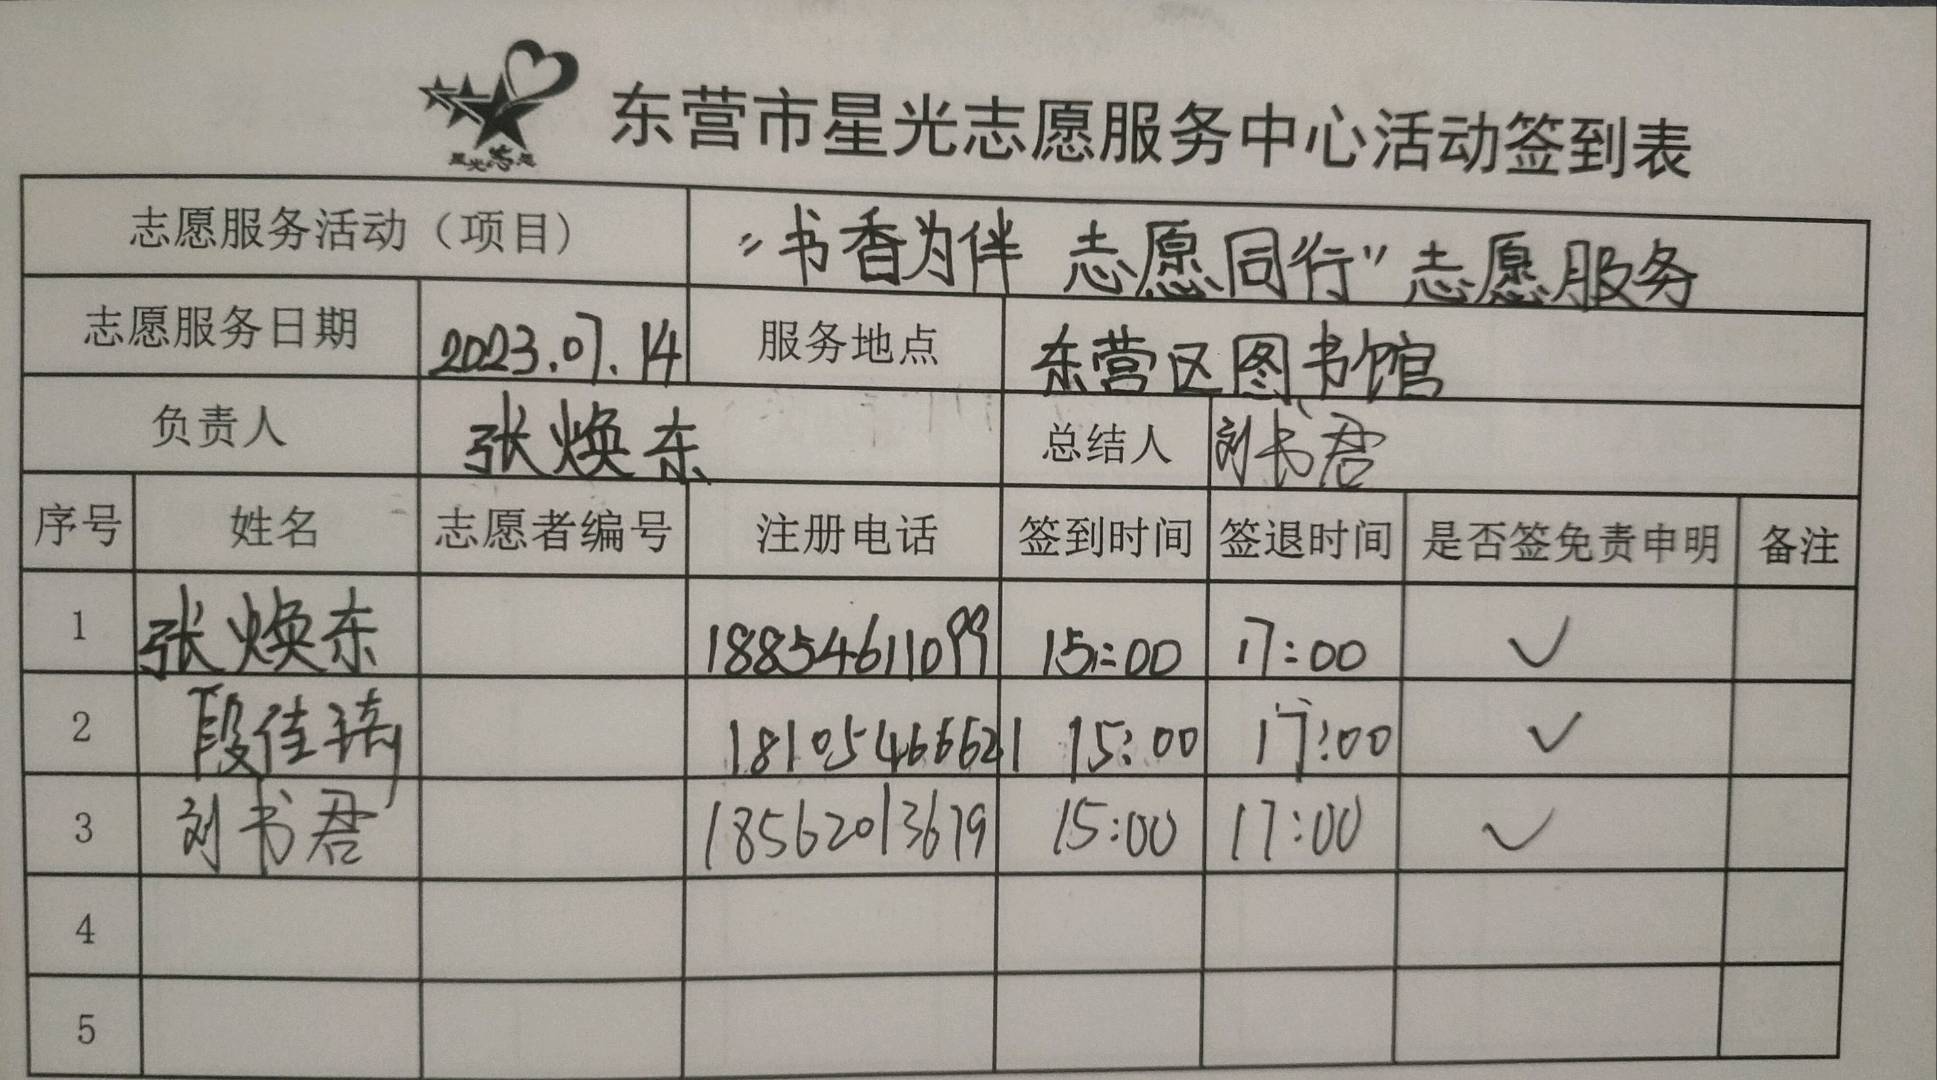 星光志愿
东营市星光志愿服务中心活动签到表
志愿服务活动（项目） “书香为伴 志愿同行”志愿服务
志愿服务日期 2023.07.14 服务地点 东营区图书馆
负责人 张焕东 总结人 刘书君
序号 姓名 志愿者编号 注册电话 签到时间 签退时间 是否签免责申明 备注
1 张焕东 18854611099 15:00 17:00 ✓
2 段佳琦 18105466621 15:00 17:00 ✓
3 刘书君 18562013679 15:00 17:00 ✓
4
5